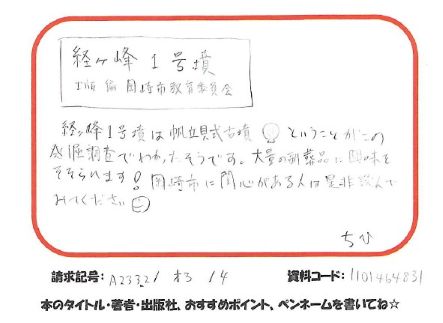 経ヶ峰1号墳
編 岡崎市教育委員会
経ヶ峰1号墳は帆立貝式古墳ということがこの
発掘調査でわかったそうです。大量の副葬品に興味を
そそられます!岡崎市に関心がある人は是非読んで
みてください
ちひ
請求記号: A233.2/オカ/4 資料コード: 1101464831
本のタイトル・著者・出版社、おすすめポイント、ペンネームを書いてね☆